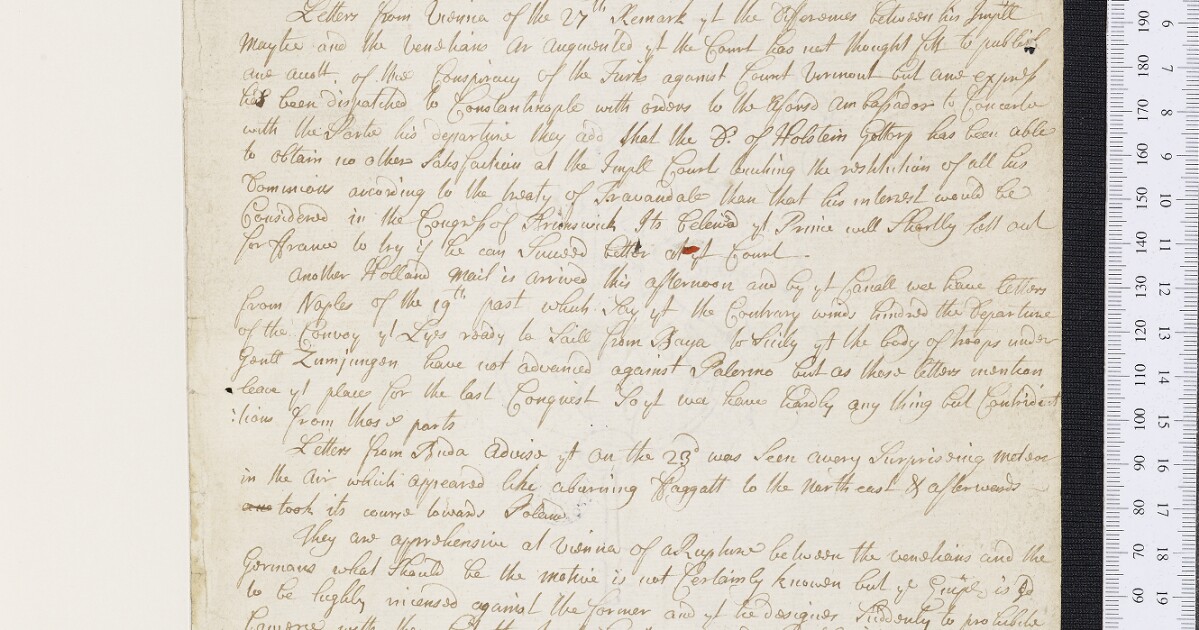 Letters from Vienna of the 27th Remark yt the Differences between his Impll
Maytie and the venetians ar augmented yt the Court has not thought fitt to publish
ane acott. of the Conspiracy of the Turks against Count Virmont but ane express
has been dispatched to Constantinople with orders to the aforsd ambassador to Concerte
with the Porte his departure they add that the D. of Holstein Gottorp has been able
to obtain no other Satisfaction at the Impll Court touching the restitution of all his
Dominions according to the treaty of Travandale than that his interest would be
Considered in the Congress of Brunswick Its beleivd yt Prince will Shortly sett out
for ffrance to try if he can Succeed better at yt Court.
Another Holland Mail is arrived this afternoon and by yt Canall wee have letters
from Naples of the 19th past which Say yt the Contrary winds hindred the departure
of the Convoy yt Lyes ready to Saill from Baya to Sicily yt the body of troops under
Genll Zumjungen have not advanced against Palermo but as these letters mention
leave yt place for the last Conquest So yt wee have hardly any thing but Contradict
:tions from those parts
Letters from Buda advise yt on the 23d was Seen avery Surpriseing meteor
in the air which appeared like aburning Faggatt to the north east & afterwards
took its course towards Poland
They are apprehensive at Vienna of aRupture between the venetians and the
Germans what Should be the motive is not Certainly knowen but ye Empr is Sd
to be highly incensed against the former and yt he designes Suddenly to prohibite
Comerce with the